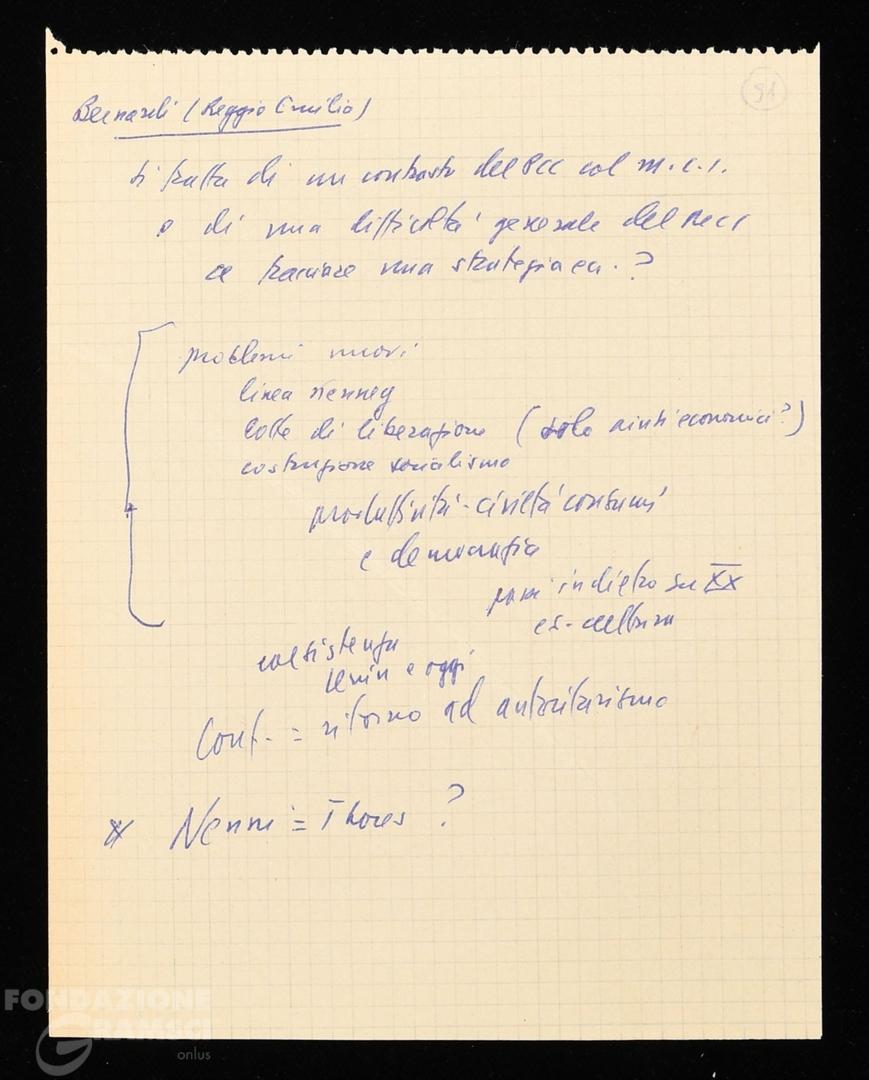 91
Bernardi (Reggio Emilia)
si tratta di un contrasto del PCC col m.c.i.
o di una difficoltà generale del
a tracciare una strategia ecc. ?
problemi nuovi
linea
lotte di liberazione (solo aiuti economici?)
costruzione socialismo
produttività - civiltà consumi
e democrazia
passi indietro su XX
es - cultura
coesistenza
Lenin e oggi
Conf. = ritorno ad autoritarismo
Nenni = Thores ?
FONDAZIONE
GRAMSCI
onlus